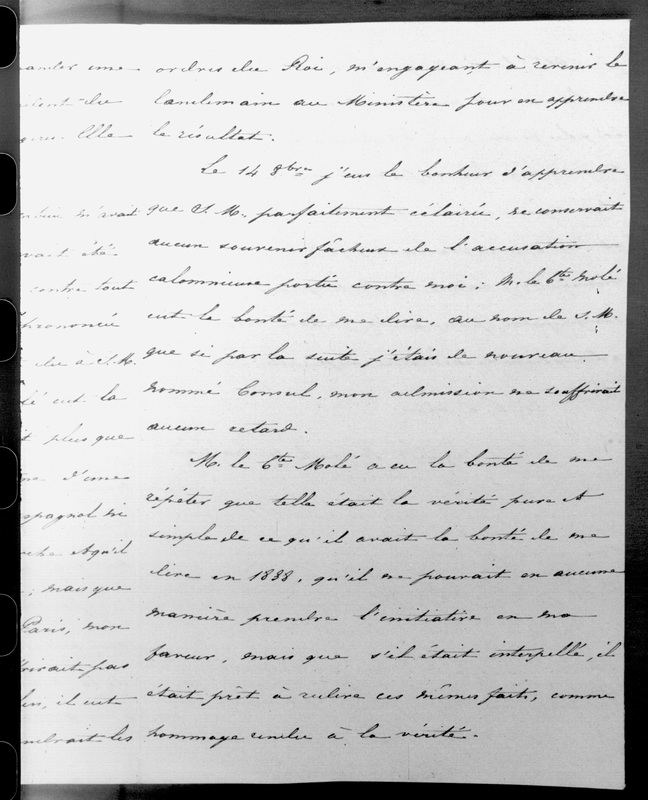 ordres du Roi, m'engageant à revenir le
lendemain au Ministère pour en apprendre
le résultat.
Le 14 8bre j'eus le bonheur d'apprendre
que S. M. parfaitement éclairée, ne conservait
aucun souvenir fâcheux de l'accusation
calomnieuse portée contre moi; M. le Cte Molé
eut la bonté de me dire, au nom de S. M.
que si par la suite j'étais de nouveau
nommé Consul, mon admission ne souffrirait
aucun retard.
M. le Cte Molé a eu la bonté de me
répéter que telle était la vérité pure et
simple de ce qu'il avait la bonté de me
dire en 1838, qu'il ne pouvait en aucune
manière prendre l'initiative en ma
faveur, mais que s'il était interpellé, il
était prêt à redire ces mêmes faits, comme
hommage rendu à la vérité.
une
du
Elle
m'avait
été
contre tout
prononcée
du à S. M.
eut la
plus que
d'une
mais que
Paris, mon
pas
il eut
les